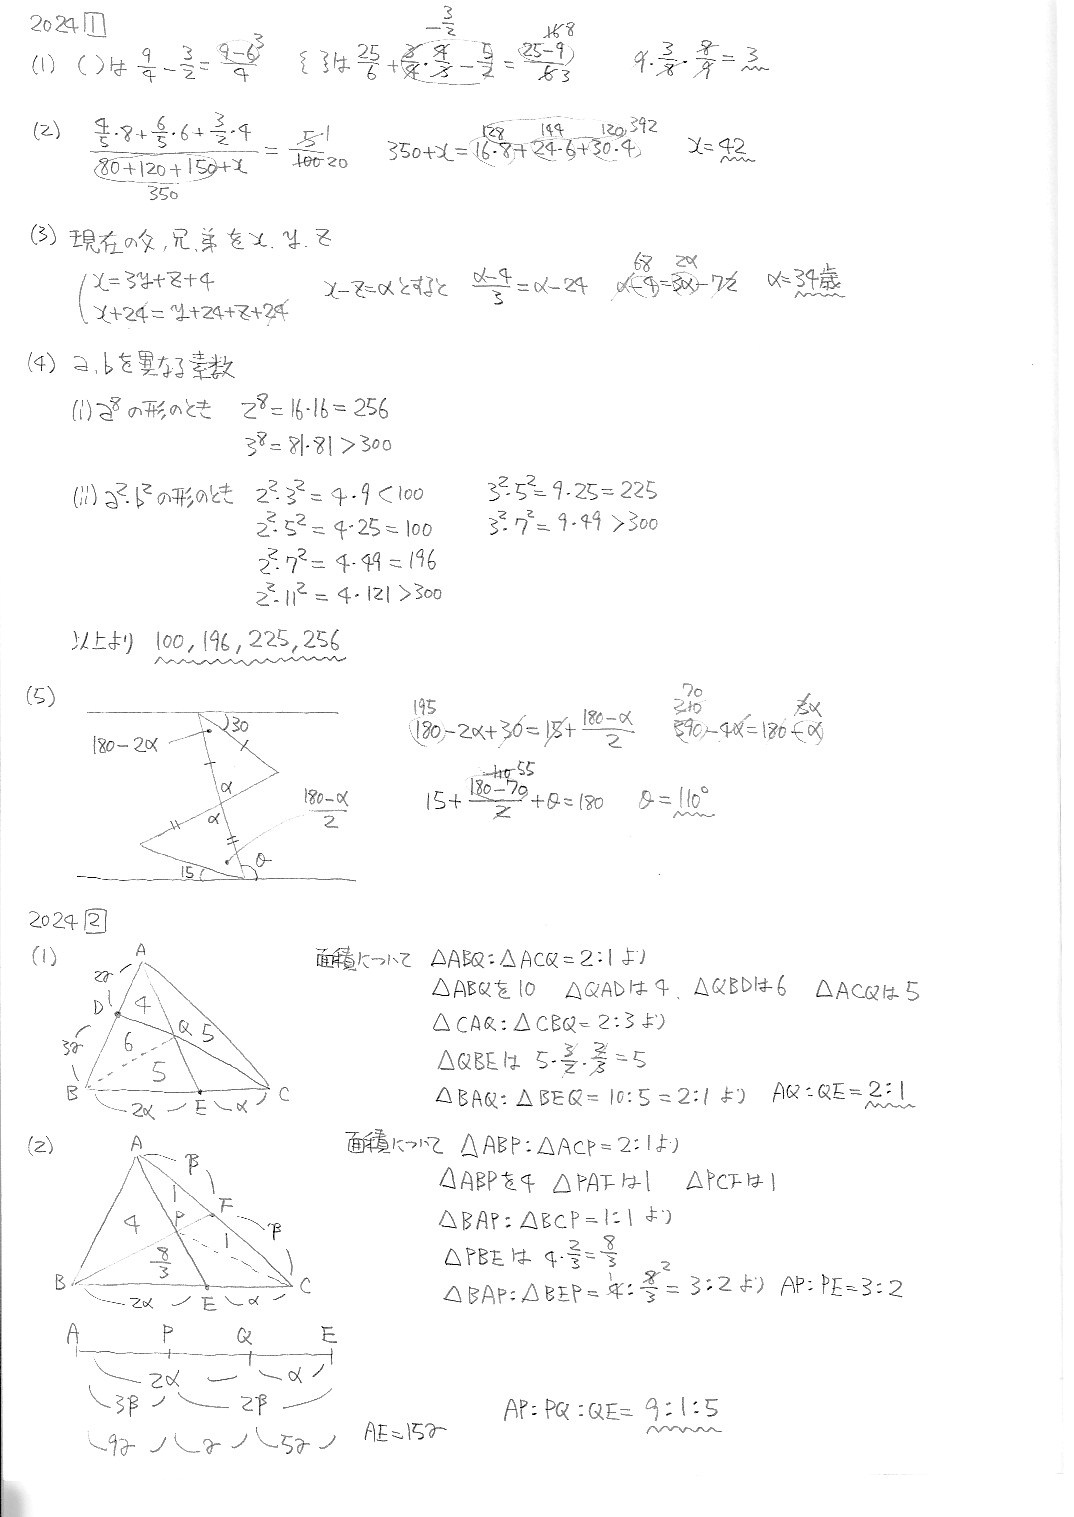 2024 1
(1) ( )は 9/4 - 3/2 = 9-6/4 3 { }は 25/6 + 3/4・4/3 - 5/2 = 25-9/6 3 16 8 -3/2 9・3/8・8/9 = 3
(2) 4/5・8+6/5・6+3/2・4 / 80+120+150+x = 5 1/100 20 350 350+x = 16・8+24・6+30・4 128 144 120 392 x=42
(3) 現在の父,兄,弟をx, y, z
x=3y+z+4
x+24=y+24+z+24 x-z=αとすると α-4/3=α-24 α-4=3α-72 68 2α α=34歳
(4) a,bを異なる素数
(i) a⁸の形のとき 2⁸=16・16=256
3⁸=81・81>300
(ii) a²・b²の形のとき 2²・3²=4・9<100 3²・5²=9・25=225
2²・5²=4・25=100 3²・7²=9・49>300
2²・7²=4・49=196
2²・11²=4・121>300
以上より 100, 196, 225, 256
(5)
30
180-2α
α
α
180-α/2
15
θ
195
180-2α+30=15+180-α/2 70 210 390-4α=180-α 3α
15+180-70/2+θ=180 110 55 θ=110°
2024 2
(1) A 面積について △ABQ:△ACQ=2:1より
△ABQを10 △QADは4, △QBDは6 △ACQは5
△CAQ:△CBQ=2:3より
△QBEは 5・3/2・2/3=5
△BAQ:△BEQ=10:5=2:1より AQ:QE=2:1
D 4 Q 5
6
5
B E C
2α α
(2) A 面積について △ABP:△ACP=2:1より
△ABPを4 △PAFは1 △PCFは1
△BAP:△BCP=1:1より
△PBEは 4・2/3=8/3
△BAP:△BEP=4:8/3=3:2より 1 2 AP:PE=3:2
β
1 F
4 P β
1
8/3
B E C
2α α
A P Q E
2α α
3β 2β
AP:PQ:QE=9:1:5
AE=15γ
9γ γ 5γ